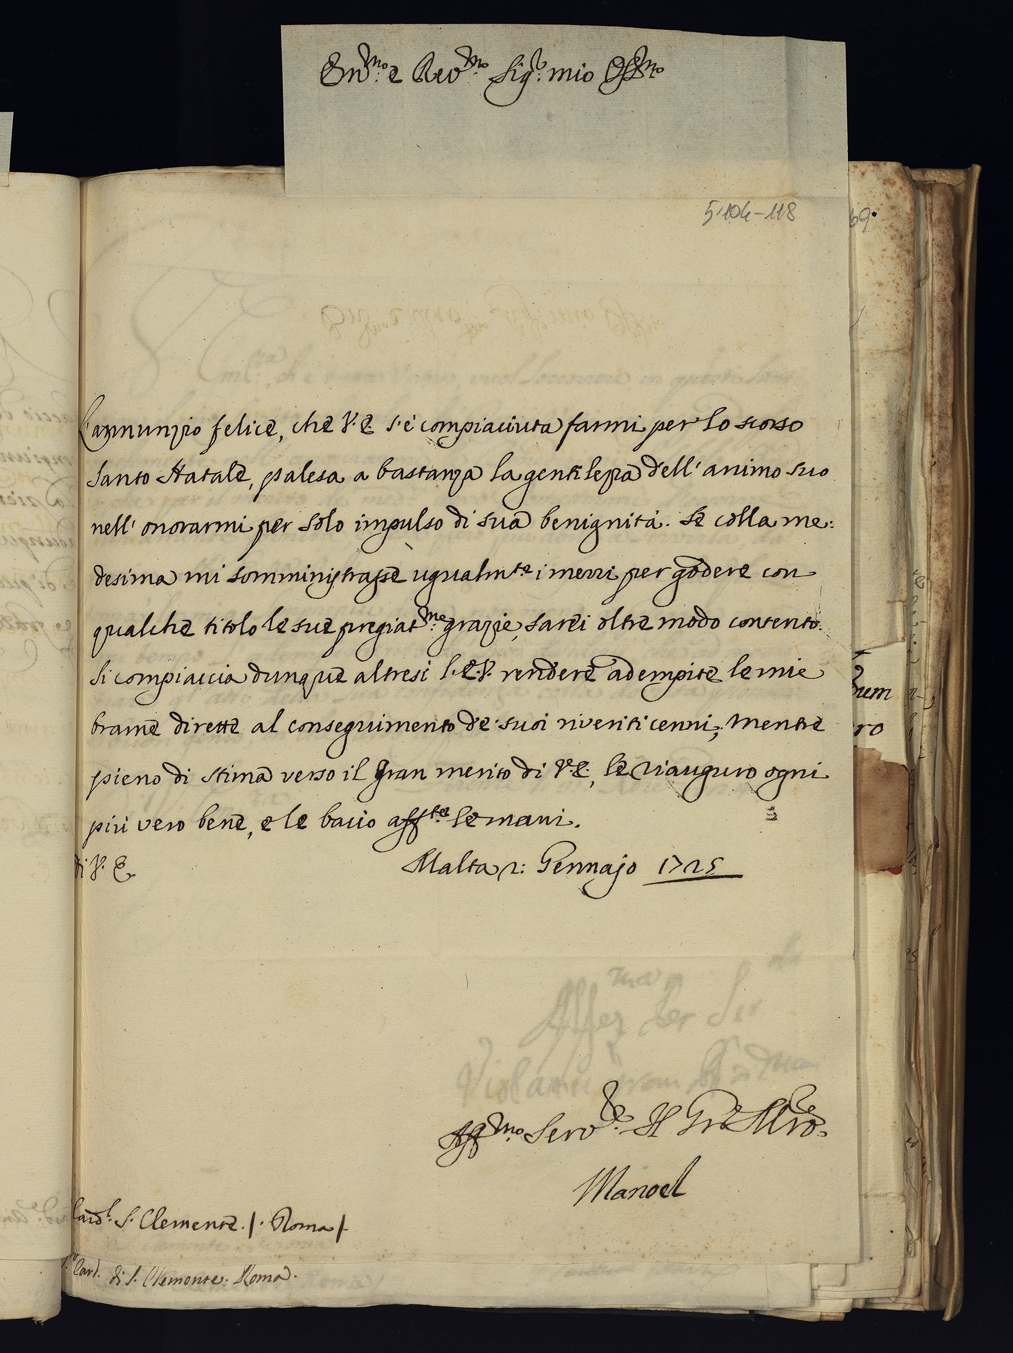 Em.mo e Rev.mo Sig.r mio Oss.mo
5'104-118
69.
L'annunzio felice, che V.E. s'è compiaciuta farmi per lo scorso
Santo Natale, palesa a bastanza la gentilezza dell'animo suo
nell'onorarmi per solo impulso di sua benignità. Se colla me:
desima mi somministrasse ugualm.te i mezzi per godere con
qualche titolo le sue pregiat.me grazie, sarei oltre modo contento.
Si compiaccia dunque altresì l'E.V. rendere adempite le mie
brame dirette al conseguimento de' suoi riveriti cenni; mentre
pieno di stima verso il gran merito di V.E., le riauguro ogni
più vero bene, e le bacio aff.te le mani.
di V. E.
Malta 2: Gennajo 1725
Aff.mo Serv.re Il Gr. Mro.
Manoel
Card.l S. Clemente ./. Roma ./.
Card. di S. Clemente. Roma.